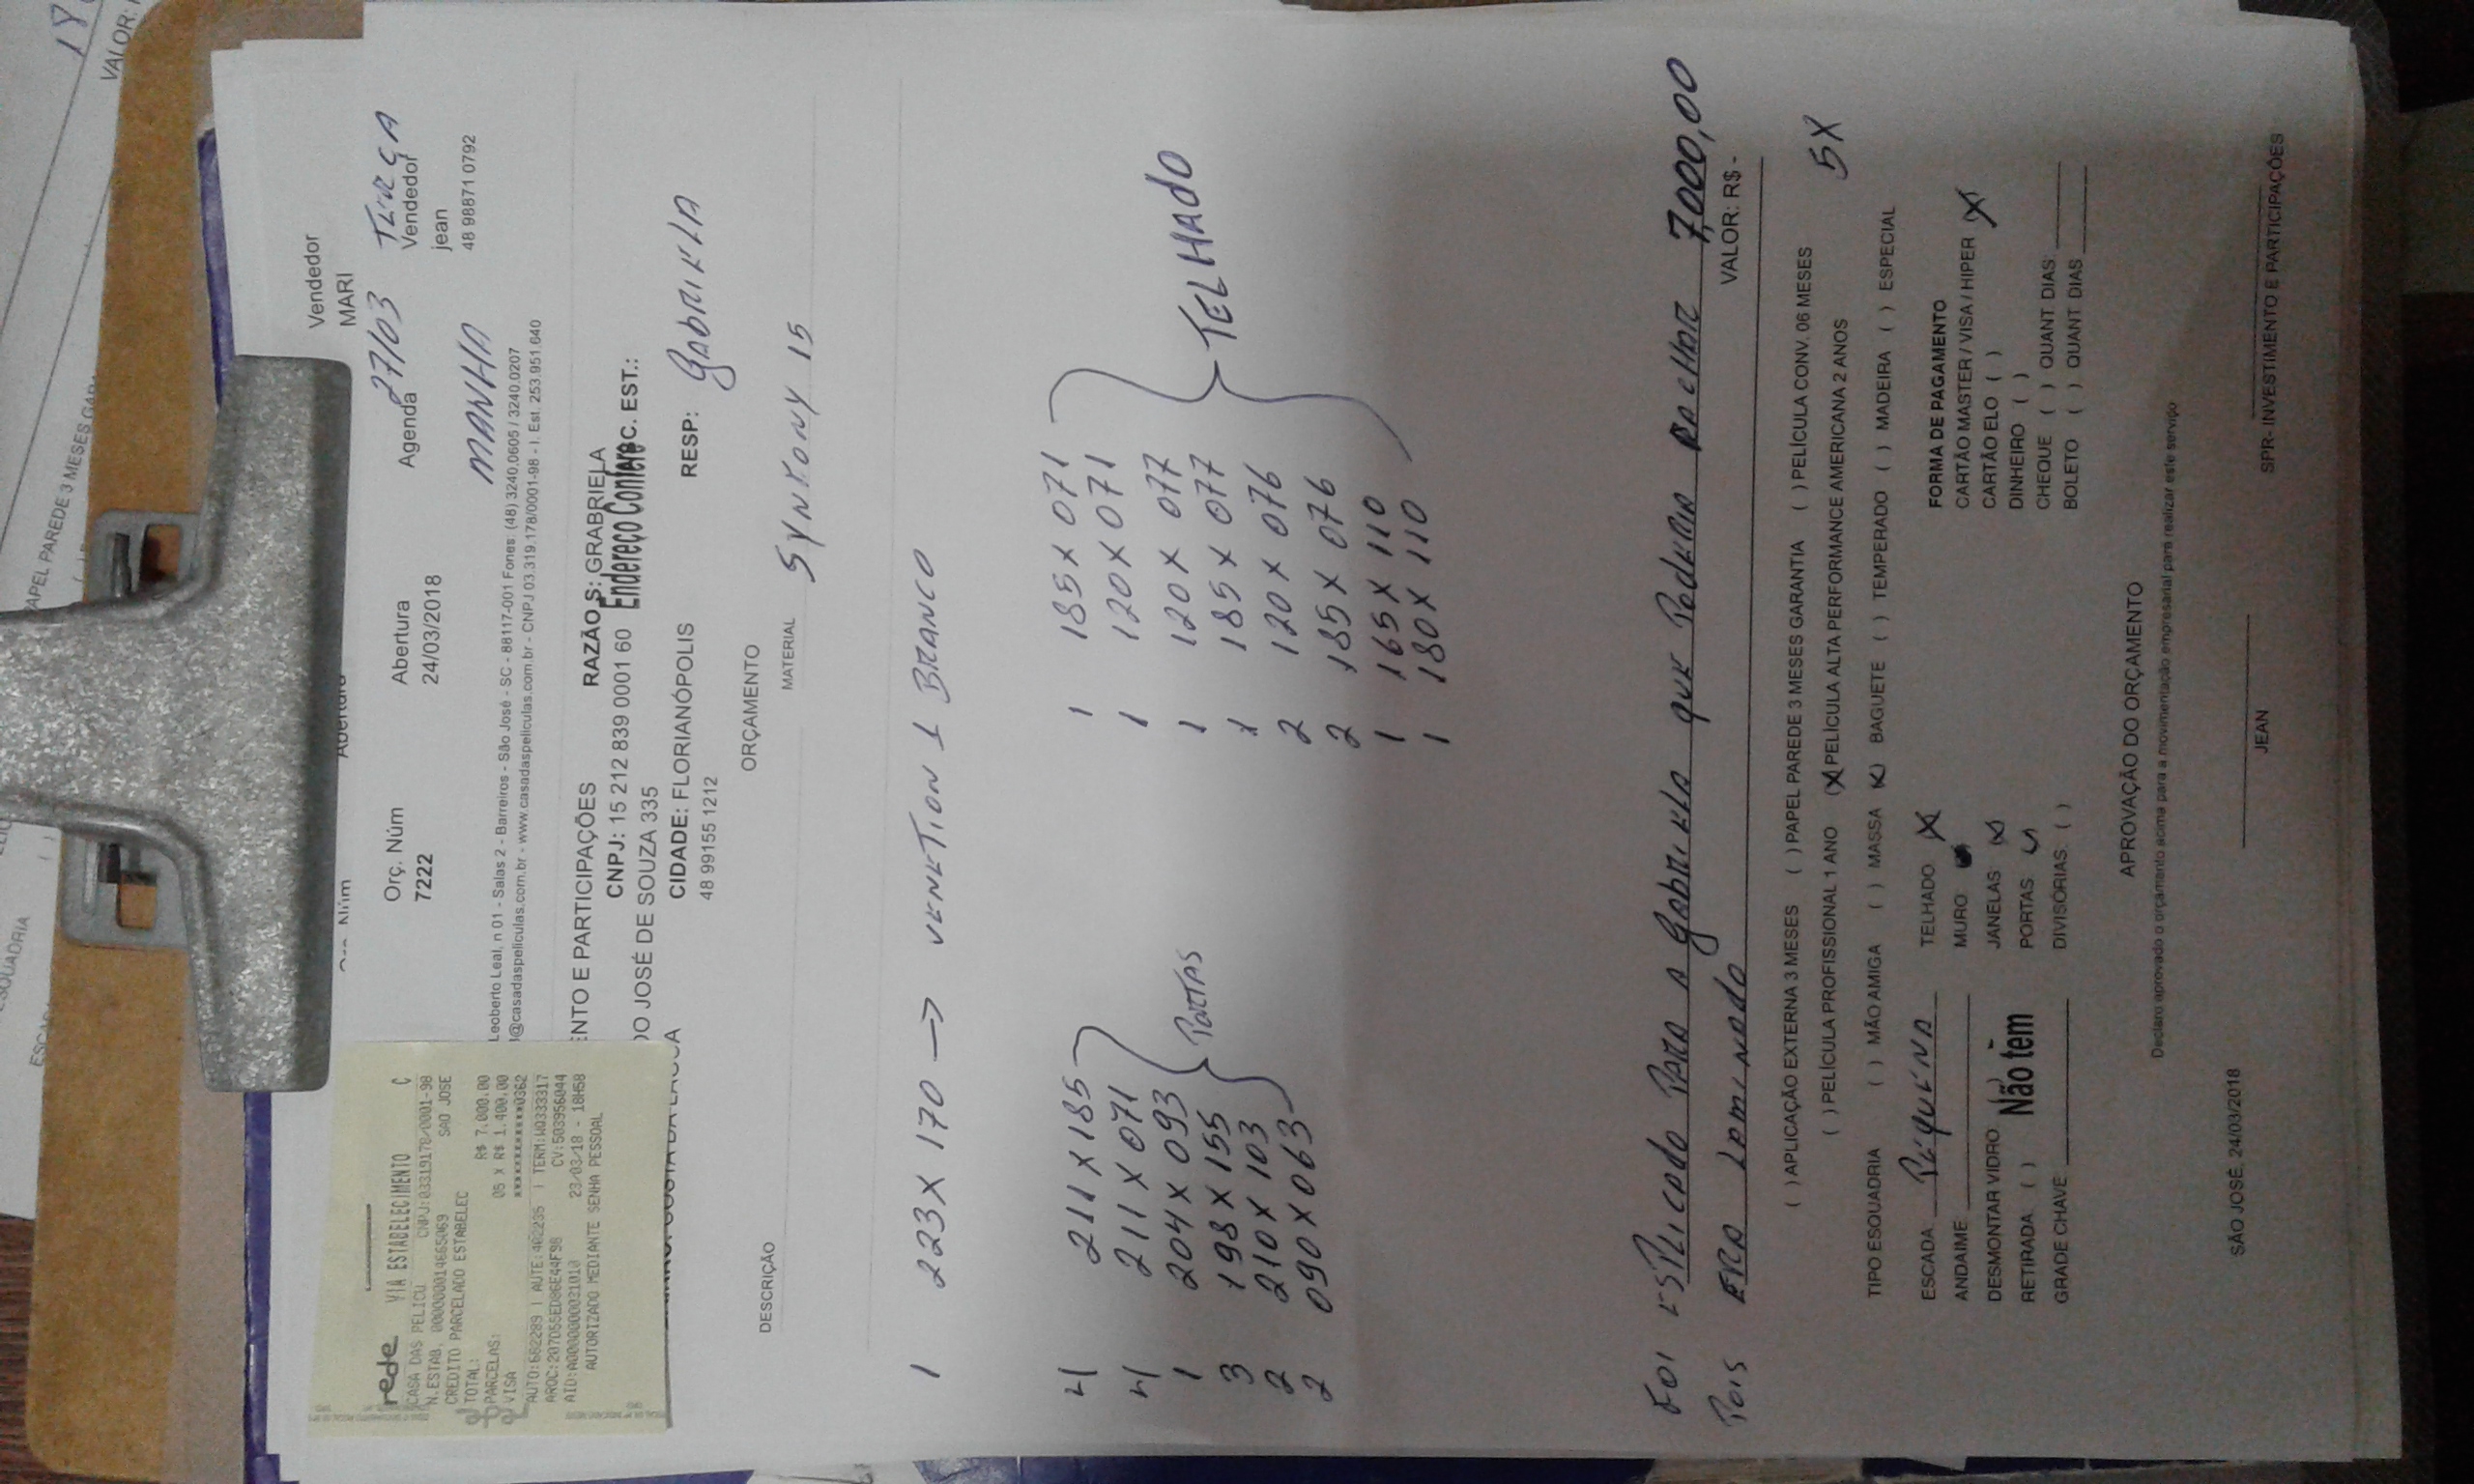 VALOR:
PAPEL PAREDE 3 MESES GAR
Vendedor
MARI
rede
VIA ESTABELECIMENTO C
CASA DAS PELICU CNPJ:03319178/0001-98
N.ESTAB. 000000014665069 SAO JOSE
CREDITO PARCELADO ESTABELEC
TOTAL: R$ 7.000,00
PARCELAS: 05 x R$ 1.400,00
VISA ************0362
AUTO:682289 | AUTE:402235 | TERM:WQ333317
AROC:207D55ED86E44F98 CV:503956044
AID:A0000000031010 23/03/18 - 18H58
AUTORIZADO MEDIANTE SENHA PESSOAL
Orç. Núm Abertura Agenda 27/03 TERÇA
7222 24/03/2018 Vendedor
jean
MANHA 48 98871 0792
Leoberto Leal, n 01 - Salas 2 - Barreiros - São José - SC - 88117-001 Fones: (48) 3240.0605 / 3240.0207
@casadaspeliculas.com.br - www.casadaspeliculas.com.br - CNPJ 03.319.178/0001-98 - I. Est. 253.951.640
ENTO E PARTICIPAÇÕES RAZÃO S: GRABRIELA
CNPJ: 15 212 839 0001 60 Endereço Confere C. EST.:
DO JOSÉ DE SOUZA 335
CIDADE: FLORIANÓPOLIS RESP: GABRIELA
48 99155 1212
ORÇAMENTO
DESCRIÇÃO MATERIAL SYNTONY 15
1 223 X 170 → VENETION 1 BRANCO
4 211 X 185
4 211 X 071
1 204 X 093
3 198 X 155
2 210 X 103
2 090 X 063
PORTAS
1 185 X 071
1 120 X 071
1 120 X 077
1 185 X 077
2 120 X 076
2 185 X 076
1 165 X 110
1 180 X 110
TELHADO
FOI ESPLICADO PARA A GABRIELA QUE PODERIA 7,000,00
POIS ERA LAMINADO
VALOR: R$-
( ) APLICAÇÃO EXTERNA 3 MESES ( ) PAPEL PAREDE 3 MESES GARANTIA ( ) PELÍCULA CONV. 06 MESES
( ) PELÍCULA PROFISSIONAL 1 ANO (X) PELÍCULA ALTA PERFORMANCE AMERICANA 2 ANOS 5X
TIPO ESQUADRIA ( ) MÃO AMIGA ( ) MASSA (X) BAGUETE ( ) TEMPERADO ( ) MADEIRA ( ) ESPECIAL
ESCADA PEQUENA TELHADO X
ANDAIME MURO
DESMONTAR VIDRO Não tem JANELAS (X)
RETIRADA ( ) PORTAS
GRADE CHAVE DIVISÓRIAS ( )
FORMA DE PAGAMENTO
CARTÃO MASTER / VISA / HIPER X
CARTÃO ELO ( )
DINHEIRO ( )
CHEQUE ( ) QUANT DIAS:
BOLETO ( ) QUANT DIAS
APROVAÇÃO DO ORÇAMENTO
Declaro aprovado o orçamento acima para a movimentação empresarial para realizar este serviço
SÃO JOSÉ, 24/03/2018
JEAN
SPR- INVESTIMENTO E PARTICIPAÇÕES